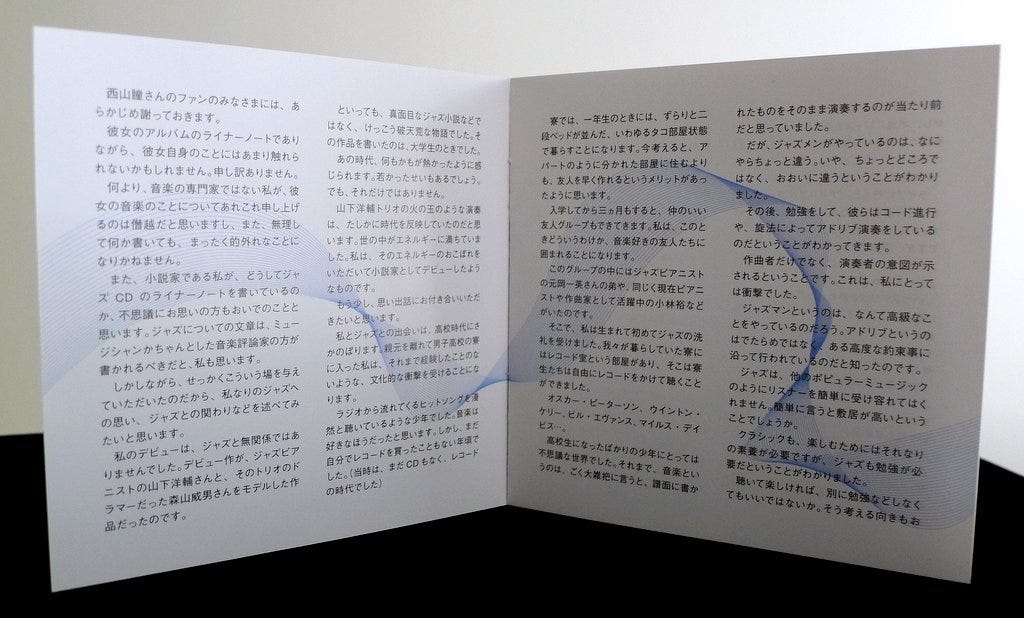 西山瞳さんのファンのみなさまには、あ
らかじめ謝っておきます。
彼女のアルバムのライナーノートであり
ながら、彼女自身のことにはあまり触れら
れないかもしれません。申し訳ありません。
何より、音楽の専門家ではない私が、彼
女の音楽のことについてあれこれ申し上げ
るのは僭越だと思いますし、また、無理し
て何か書いても、まったく的外れなことに
なりかねません。
また、小説家である私が、どうしてジャ
ズ CD のライナーノートを書いているの
か、不思議にお思いの方もおいでのことと
思います。ジャズについての文章は、ミュー
ジシャンかちゃんとした音楽評論家の方が
書かれるべきだと、私も思います。
しかしながら、せっかくこういう場を与え
ていただいたのだから、私なりのジャズへ
の思い、ジャズとの関わりなどを述べてみ
たいと思います。
私のデビューは、ジャズと無関係ではあ
りませんでした。デビュー作が、ジャズピア
ニストの山下洋輔さんと、そのトリオのド
ラマーだった森山威男さんをモデルした作
品だったのです。
といっても、真面目なジャズ小説などで
はなく、けっこう破天荒な物語でした。そ
の作品を書いたのは、大学生のときでした。
あの時代、何もかもが熱かったように感
じられます。若かったせいもあるでしょう。
でも、それだけではありません。
山下洋輔トリオの火の玉のような演奏
は、たしかに時代を反映していたのだと思
います。世の中がエネルギーに満ちていま
した。私は、そのエネルギーのおこぼれを
いただいて小説家としてデビューしたよう
なものです。
もう少し、思い出話にお付き合いいただ
きたいと思います。
私とジャズとの出会いは、高校時代にさ
かのぼります。親元を離れて男子高校の寮
に入った私は、それまで経験したことのな
いような、文化的な衝撃を受けることにな
ります。
ラジオから流れてくるヒットソングを漫
然と聴いているような少年でした。音楽は
好きなほうだったと思います。しかし、まだ
自分でレコードを買ったこともない年頃で
した。(当時は、まだCDもなく、レコード
の時代でした)
寮では、一年生のときには、ずらりと二
段ベッドが並んだ、いわゆるタコ部屋状態
で暮らすことになります。今考えると、ア
パートのように分かれた部屋に住むより
も、友人を早く作れるというメリットがあっ
たように思います。
入学してから三ヵ月もすると、仲のいい
友人グループもできてきます。私は、このと
きどういうわけか、音楽好きの友人たちに
囲まれることになります。
このグループの中にはジャズピアニスト
の元岡一英さんの弟や、同じく現在ピアニ
ストや作曲家として活躍中の小林裕など
がいたのです。
そこで、私は生まれて初めてジャズの洗
礼を受けました。我々が暮らしていた寮に
はレコード室という部屋があり、そこは寮
生たちは自由にレコードをかけて聴くこと
ができました。
オスカー・ピーターソン、ウイントン・
ケリー、ビル・エヴァンス、マイルス・デイ
ビス…。
高校生になったばかりの少年にとっては
不思議な世界でした。それまで、音楽とい
うのは、ごく大雑把に言うと、譜面に書か
れたものをそのまま演奏するのが当たり前
だと思っていました。
だが、ジャズメンがやっているのは、なに
やらちょっと違う。いや、ちょっとどころで
はなく、おおいに違うということがわかり
ました。
その後、勉強をして、彼らはコード進行
や、旋法によってアドリブ演奏をしている
のだということがわかってきます。
作曲者だけでなく、演奏者の意図が示
されるということです。これは、私にとって
は衝撃でした。
ジャズマンというのは、なんて高級なこ
とをやっているのだろう。アドリブというの
はでたらめではなく、ある高度な約束事に
沿って行われているのだと知ったのです。
ジャズは、他のポピュラーミュージック
のようにリスナーを簡単に受け容れてはく
れません。簡単に言うと敷居が高いという
ことでしょうか。
クラシックも、楽しむためにはそれなり
の素養が必要ですが、ジャズも勉強が必
要だということがわかりました。
聴いて楽しければ、別に勉強などしなく
てもいいではないか。そう考える向きもお